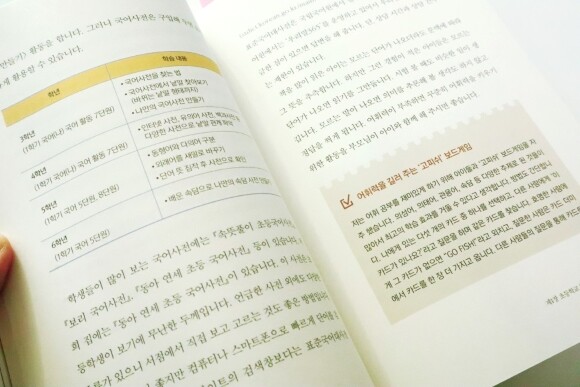 만들기) 활동을 합니다. 그러나 국어사전은 구입해
하게 활용할 수 있습니다.
학년
학습 내용
3학년
(1학기 국어(나) 국어 활동 7단원)
• 국어사전을 찾는 법
• 국어사전에서 낱말 찾아보기
(바뀌는 낱말 형태까지)
• 나만의 국어사전 만들기
4학년
(1학기 국어(나) 국어 활동 7단원)
• 인터넷 사전, 유의어 사전, 백과사전
다양한 사전으로 낱말 관계 파악
5학년
(1학기 국어 5단원, 8단원)
• 동형어와 다의어 구분
• 외래어를 새말로 바꾸기
• 단어 뜻 짐작 후 사전으로 확인
6학년
(1학기 국어 5단원)
• 배운 속담으로 나만의 속담 사전 만들기
학생들이 많이 보는 국어사전에는 『속뜻풀이 초등국어사전』
『보리 국어사전』 『동아 연세 초등 국어사전』 등이 있습니다.
희 집에는 『동아 연세 초등 국어사전』이 있습니다. 이 사전은
등학생이 보기에 무난한 두께입니다. 언급한 사전 외에도
있으니 서점에서 직접 보고 고르는 것도 좋은 방법입니다
좋지만 컴퓨터나 스마트폰으로 빠르게 단어를
검색창보다는 표준국어대사
표준국어대사전은 국립국어원에서
원에서는
는 매력이 있습니다.
책을 많이 읽은 아이는 모르는 단어가 나오더라도 문맥에 따라
그 뜻을 추측합니다. 하지만 그런 경험이 적은 아이들은 모르는
단어가 나오면 읽기를 그만둡니다. 시험 볼 때도 비슷한 일이 생
깁니다. 모르는 단어가 나오면 의미를 추론해 볼 생각도 하지 않고
정답을 찍게 됩니다. 어휘력이 부족하면 꾸준히 어휘력을 키우기
위한 활동을 부모님이 아이와 함께 해 주시면 좋습니다.
어휘력을 길러 주는 '고피쉬' 보드게임
저는 어휘 공부를 재미있게 하기 위해 아이들과 '고피쉬' 보드게임을 자
주 했습니다. 의성어, 의태어, 관용어, 속담 등 다양한 주제로 둔 것들이
많아서 최고의 학습 효과를 거둘 수 있다고 생각합니다. 방법도 간단합니
다. 나에게 있는 다섯 개의 카드 중 하나를 선택하고, 다른 사람에게 '이
카드가 있나요?'라고 질문을 하며 같은 카드를 찾습니다. 호명한 사람에
게 그 카드가 없으면 "GO FISH!"라고 외치고, 질문한 사람은 카드 더미
에서 카드를 한 장 더 가지고 옵니다. 다른 사람들의 질문을 통해 카드가
제1장 초등학교